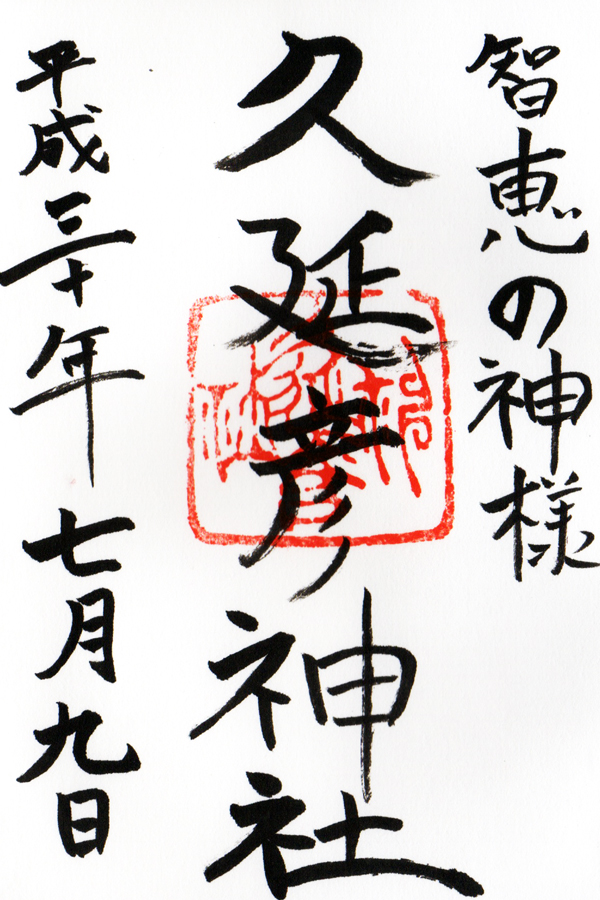 智恵の神様
久延彦神社
平成三十年 七月九日